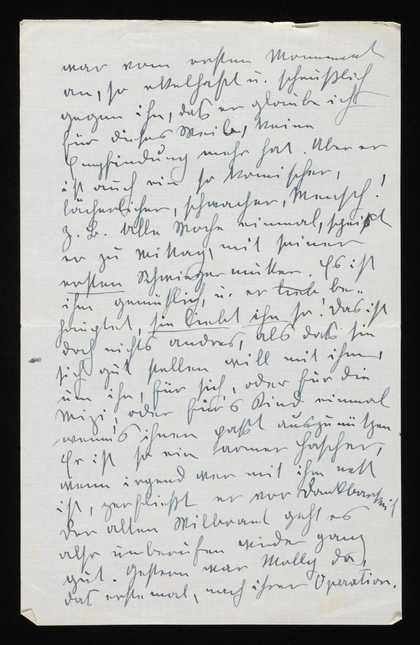 war vom ersten Moment
an, so ekelhaft u. scheußlich
gegen ihn, daß er glaube ich
für dieses Weib, keine
Empfindung mehr hat. Aber er
ist auch ein so komischer,
lächerlicher, schwacher, Mensch!
z. B. alle Woche einmal, speist
er zu Mittag, mit seiner
ersten Schwiegermutter. Es ist
ihm gemütlich, u. er be-
hauptet, sie liebt ihn so! Das ist
doch nichts andres, als daß sie
sich gut stellen will mit ihm,
um ihn, für sich, oder für die
Mizi, oder für's Kind einmal
wenn's ihnen paßt auszunützen
Er ist so ein armer Hascher,
wenn irgend wer mit ihm nett
ist, zerfließt er vor Dankbarkeit
Der alten Wilbrant geht es
also unberufen wieder ganz
gut. Gestern war Molly da,
das erste mal, nach ihrer Operation.